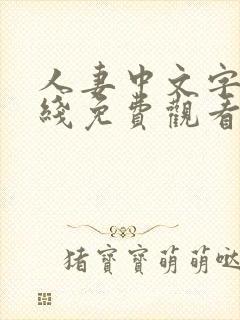 人妻中文字
綫免費觀看
猪寶寶萌萌噠